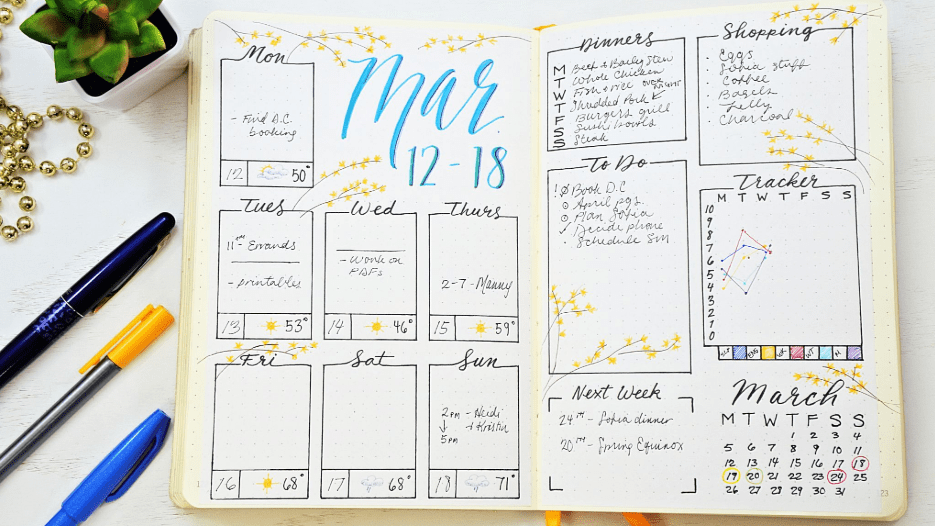 Mon
- Find D.C.
booking
12 50°
Mar
12 - 18
Tues
11am Errands
- printables
13 53°
Wed
- Work on
PDFs
14 46°
Thurs
2-7 - Manny
15 59°
Fri
16 68°
Sat
17 68°
Sun
2pm - Heidi
↓ + Kristin
5pm
18 71°
Dinners
M Beef + Barley Stew
T Whole Chicken
W Fish + rice
T Shredded Pork
F Burgers grill
S Sushi bowls
S Steak
Shopping
· Eggs
· Sofia stuff
· Coffee
· Bagels
· Jelly
· Charcoal
To Do
! Book D.C
April pgs.
Plan Sofia
✓ Decide phone
· Schedule SM
Tracker
M T W T F S S
10
9
8
7
6
5
4
3
2
1
0
Next Week
24th - Sofia dinner
20th - Spring Equinox
March
M T W T F S S
1 2 3 4
5 6 7 8 9 10 11
12 13 14 15 16 17 18
19 20 21 22 23 24 25
26 27 28 29 30 31
23